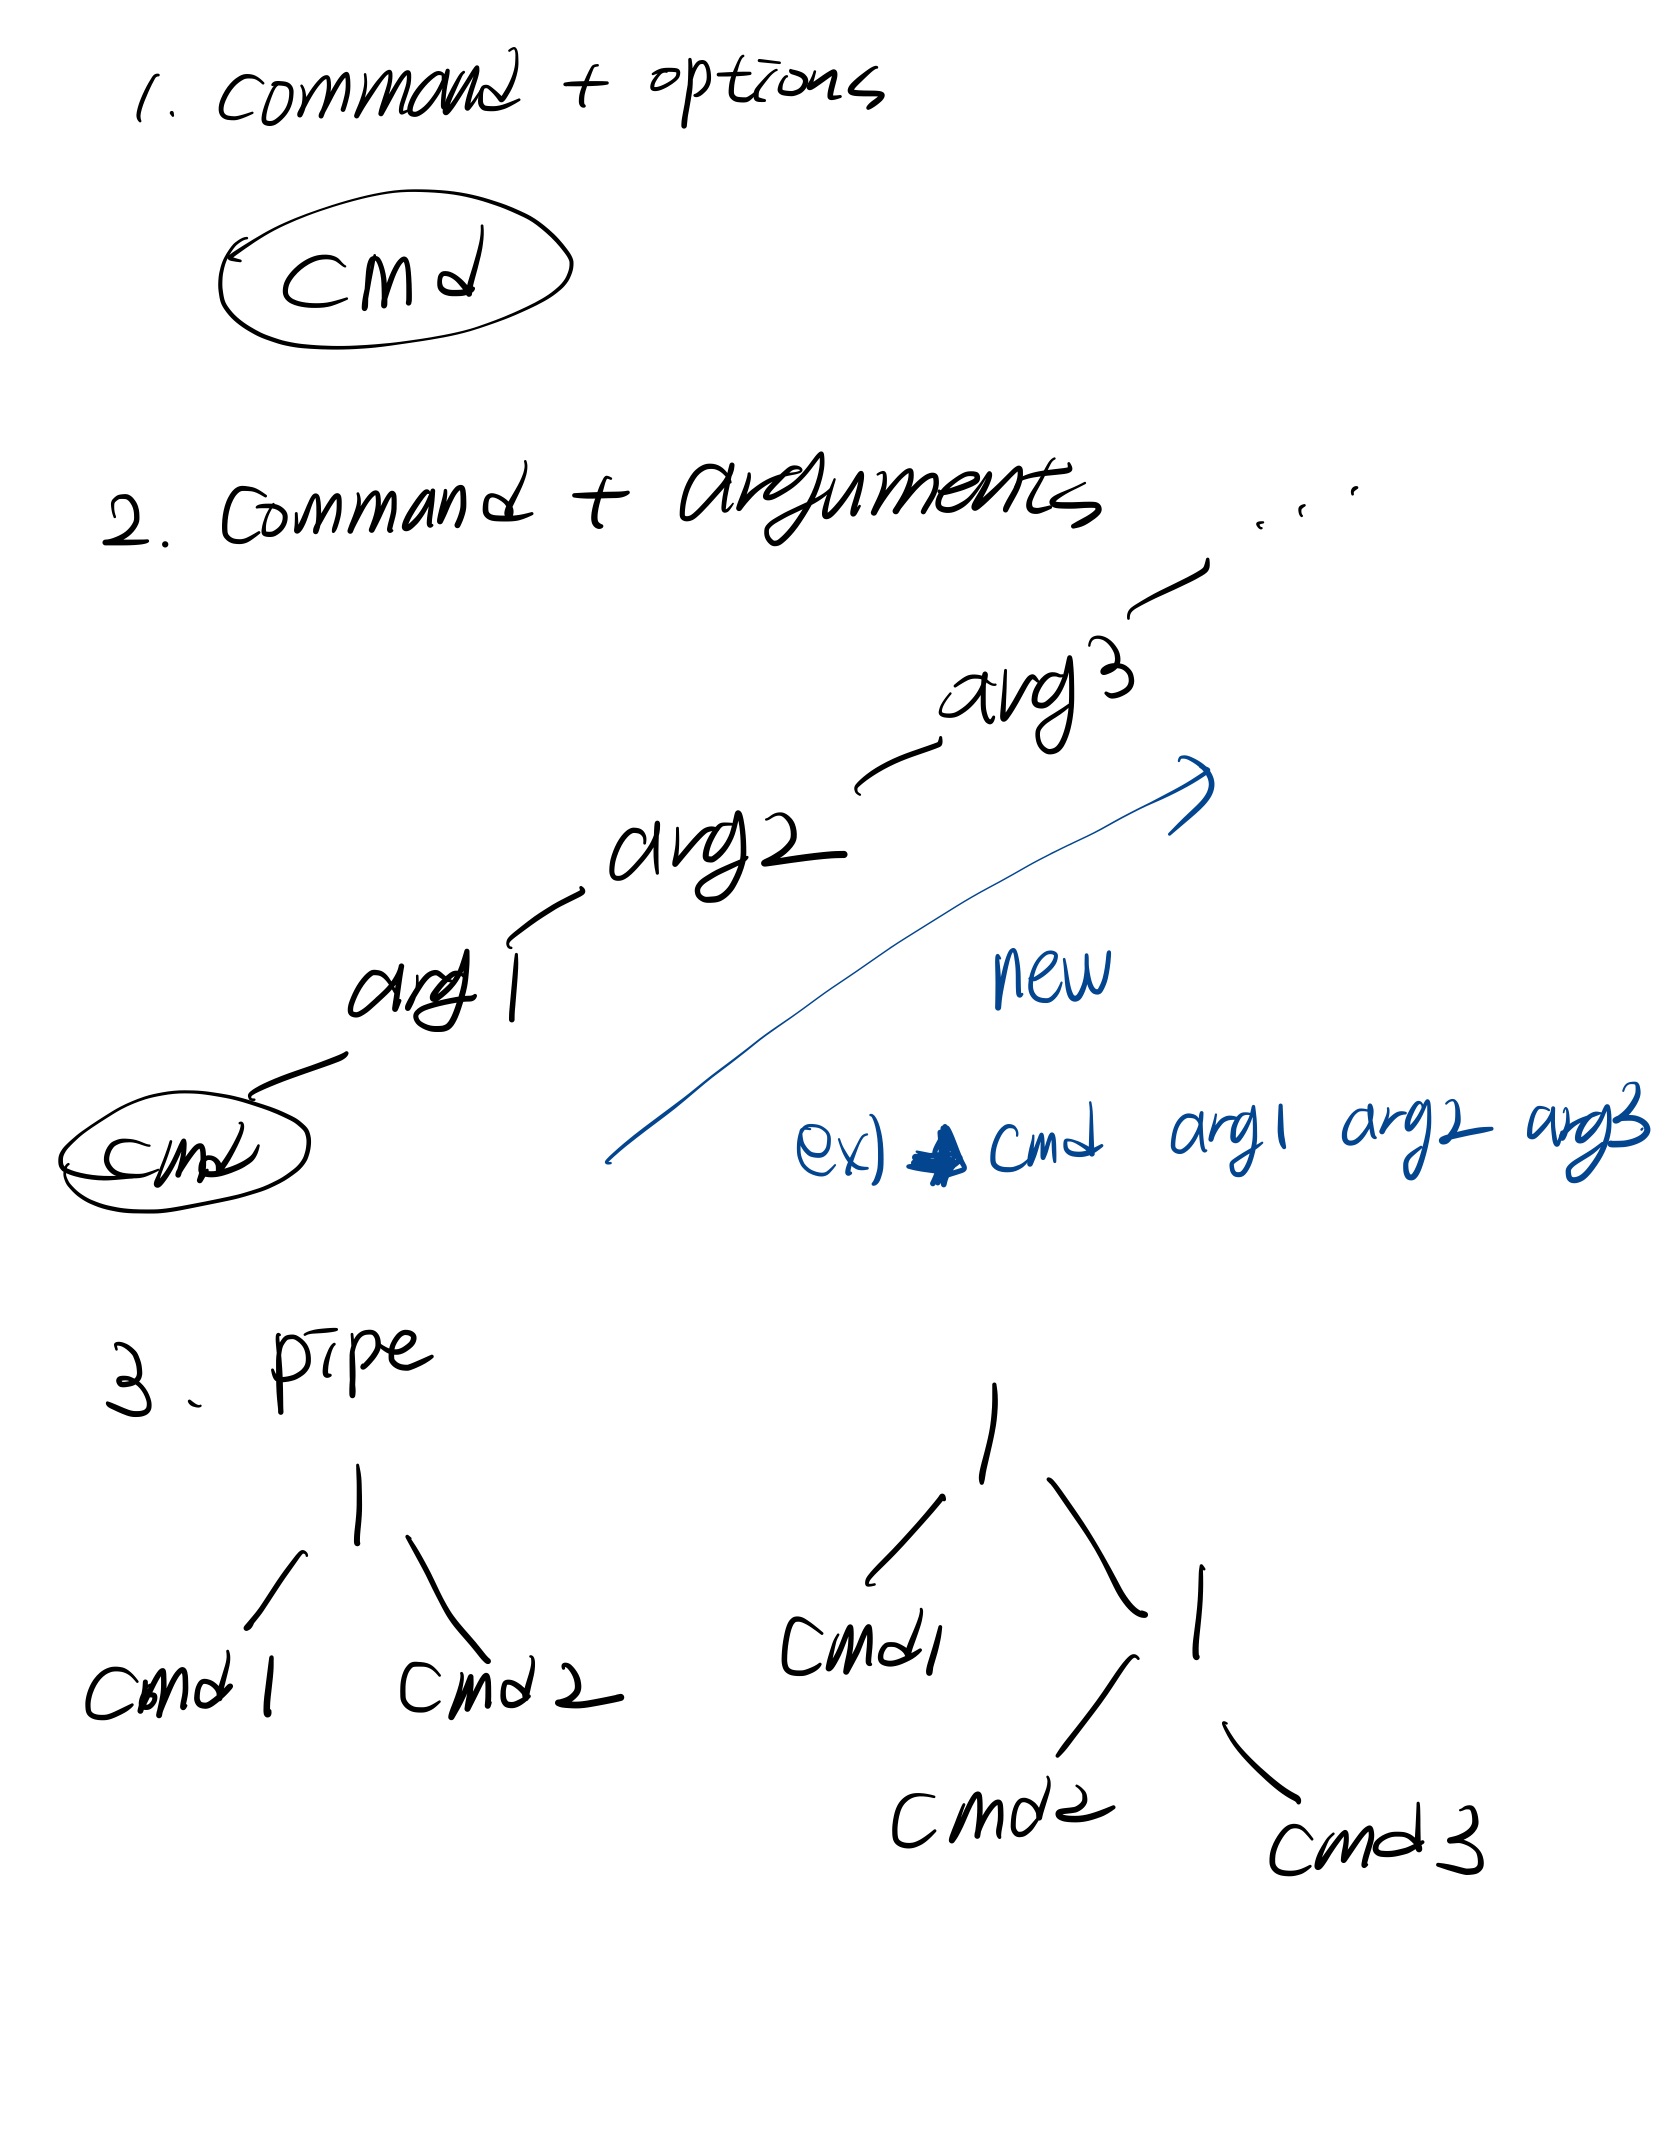 1. command + options
cmd
2. Command + arguments
...
arg3
arg2
arg1
new
cmd
ex) cmd arg1 arg2 arg3
3. pipe
|
|
cmd1 cmd2
cmd1
|
cmd2
cmd3